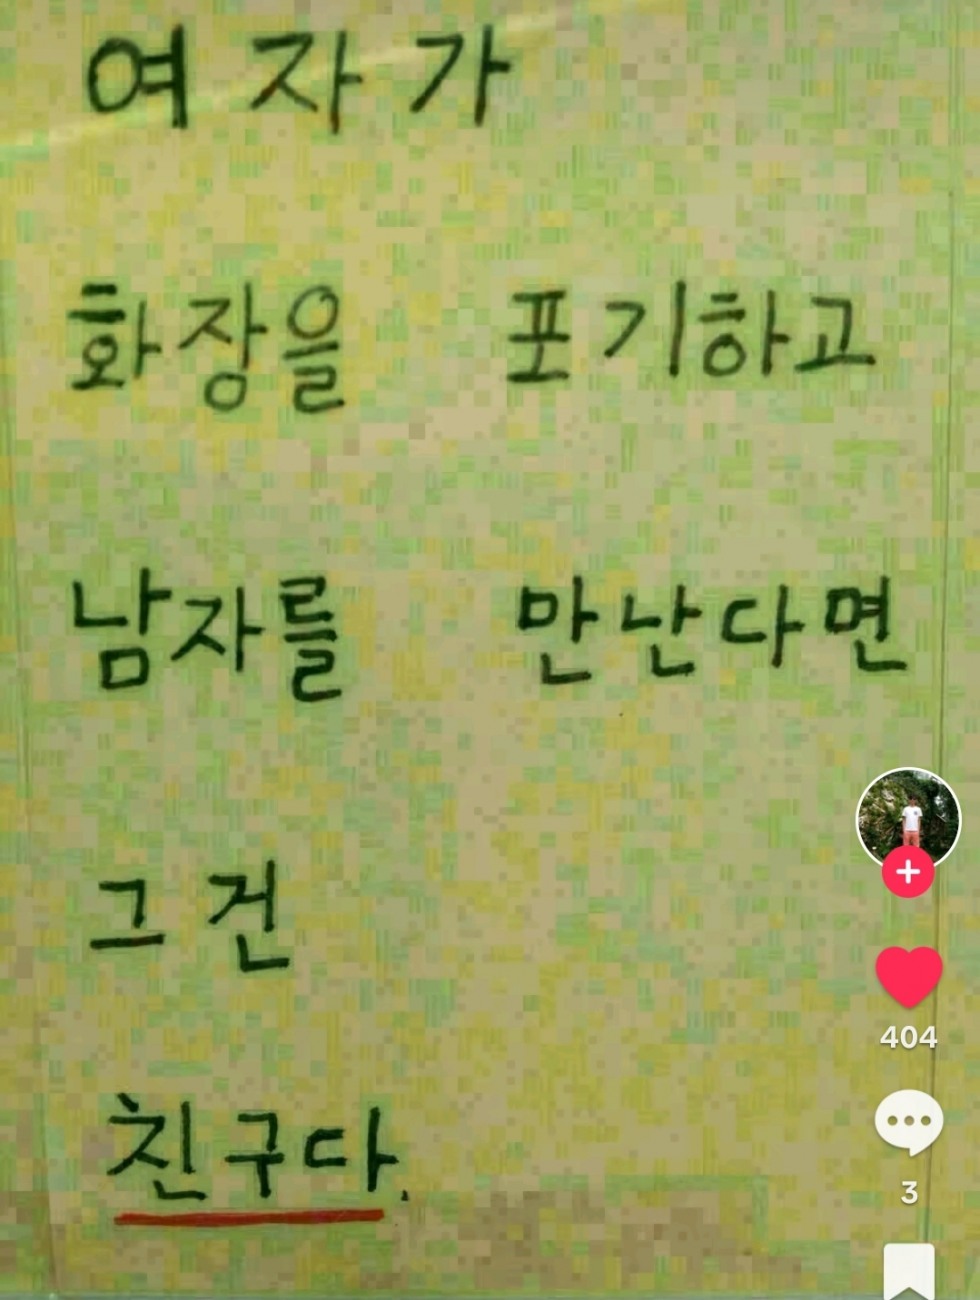 여자가
화장을 포기하고
남자를 만난다면
그건
친구다.
404
3